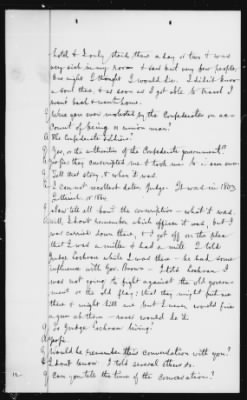 hotel & I only staid there a day or two & was
very sick in my room & saw but very few people.
One night I thought I would die. I didn't know
a soul there, & as soon as I got able to travel I
went back & went home.
Q Were you ever molested by the Confederates on ac-
count of being a union man?
A The Confederate soldiers?
Q Yes, or the authorities of the Confederate government?
A Yes sir they conscripted me & took me to
Q Tell that story, & when it was.
A I can not recollect dates Judge. It was in 1863
I think or 1864.
Q Now tell all about the conscription - what it was.
A Well, I don't remember which officer it was, but I
was carried down there, & I got off on the plea
that I was a miller & had a mill. I told
Judge Cochran while I was there - he had some
influence with Gov. Brown - I told Cochran I
was not going to fight against the old govern-
ment or the old flag; that they might put me
there & might kill me but I never would fire
a gun at them - never would do it.
Q Is Judge Cochran living?
A Yes sir.
Q Would he remember this conversation with you?
A I don't know. I told several others so.
Q Can you tell the time of the conversation?